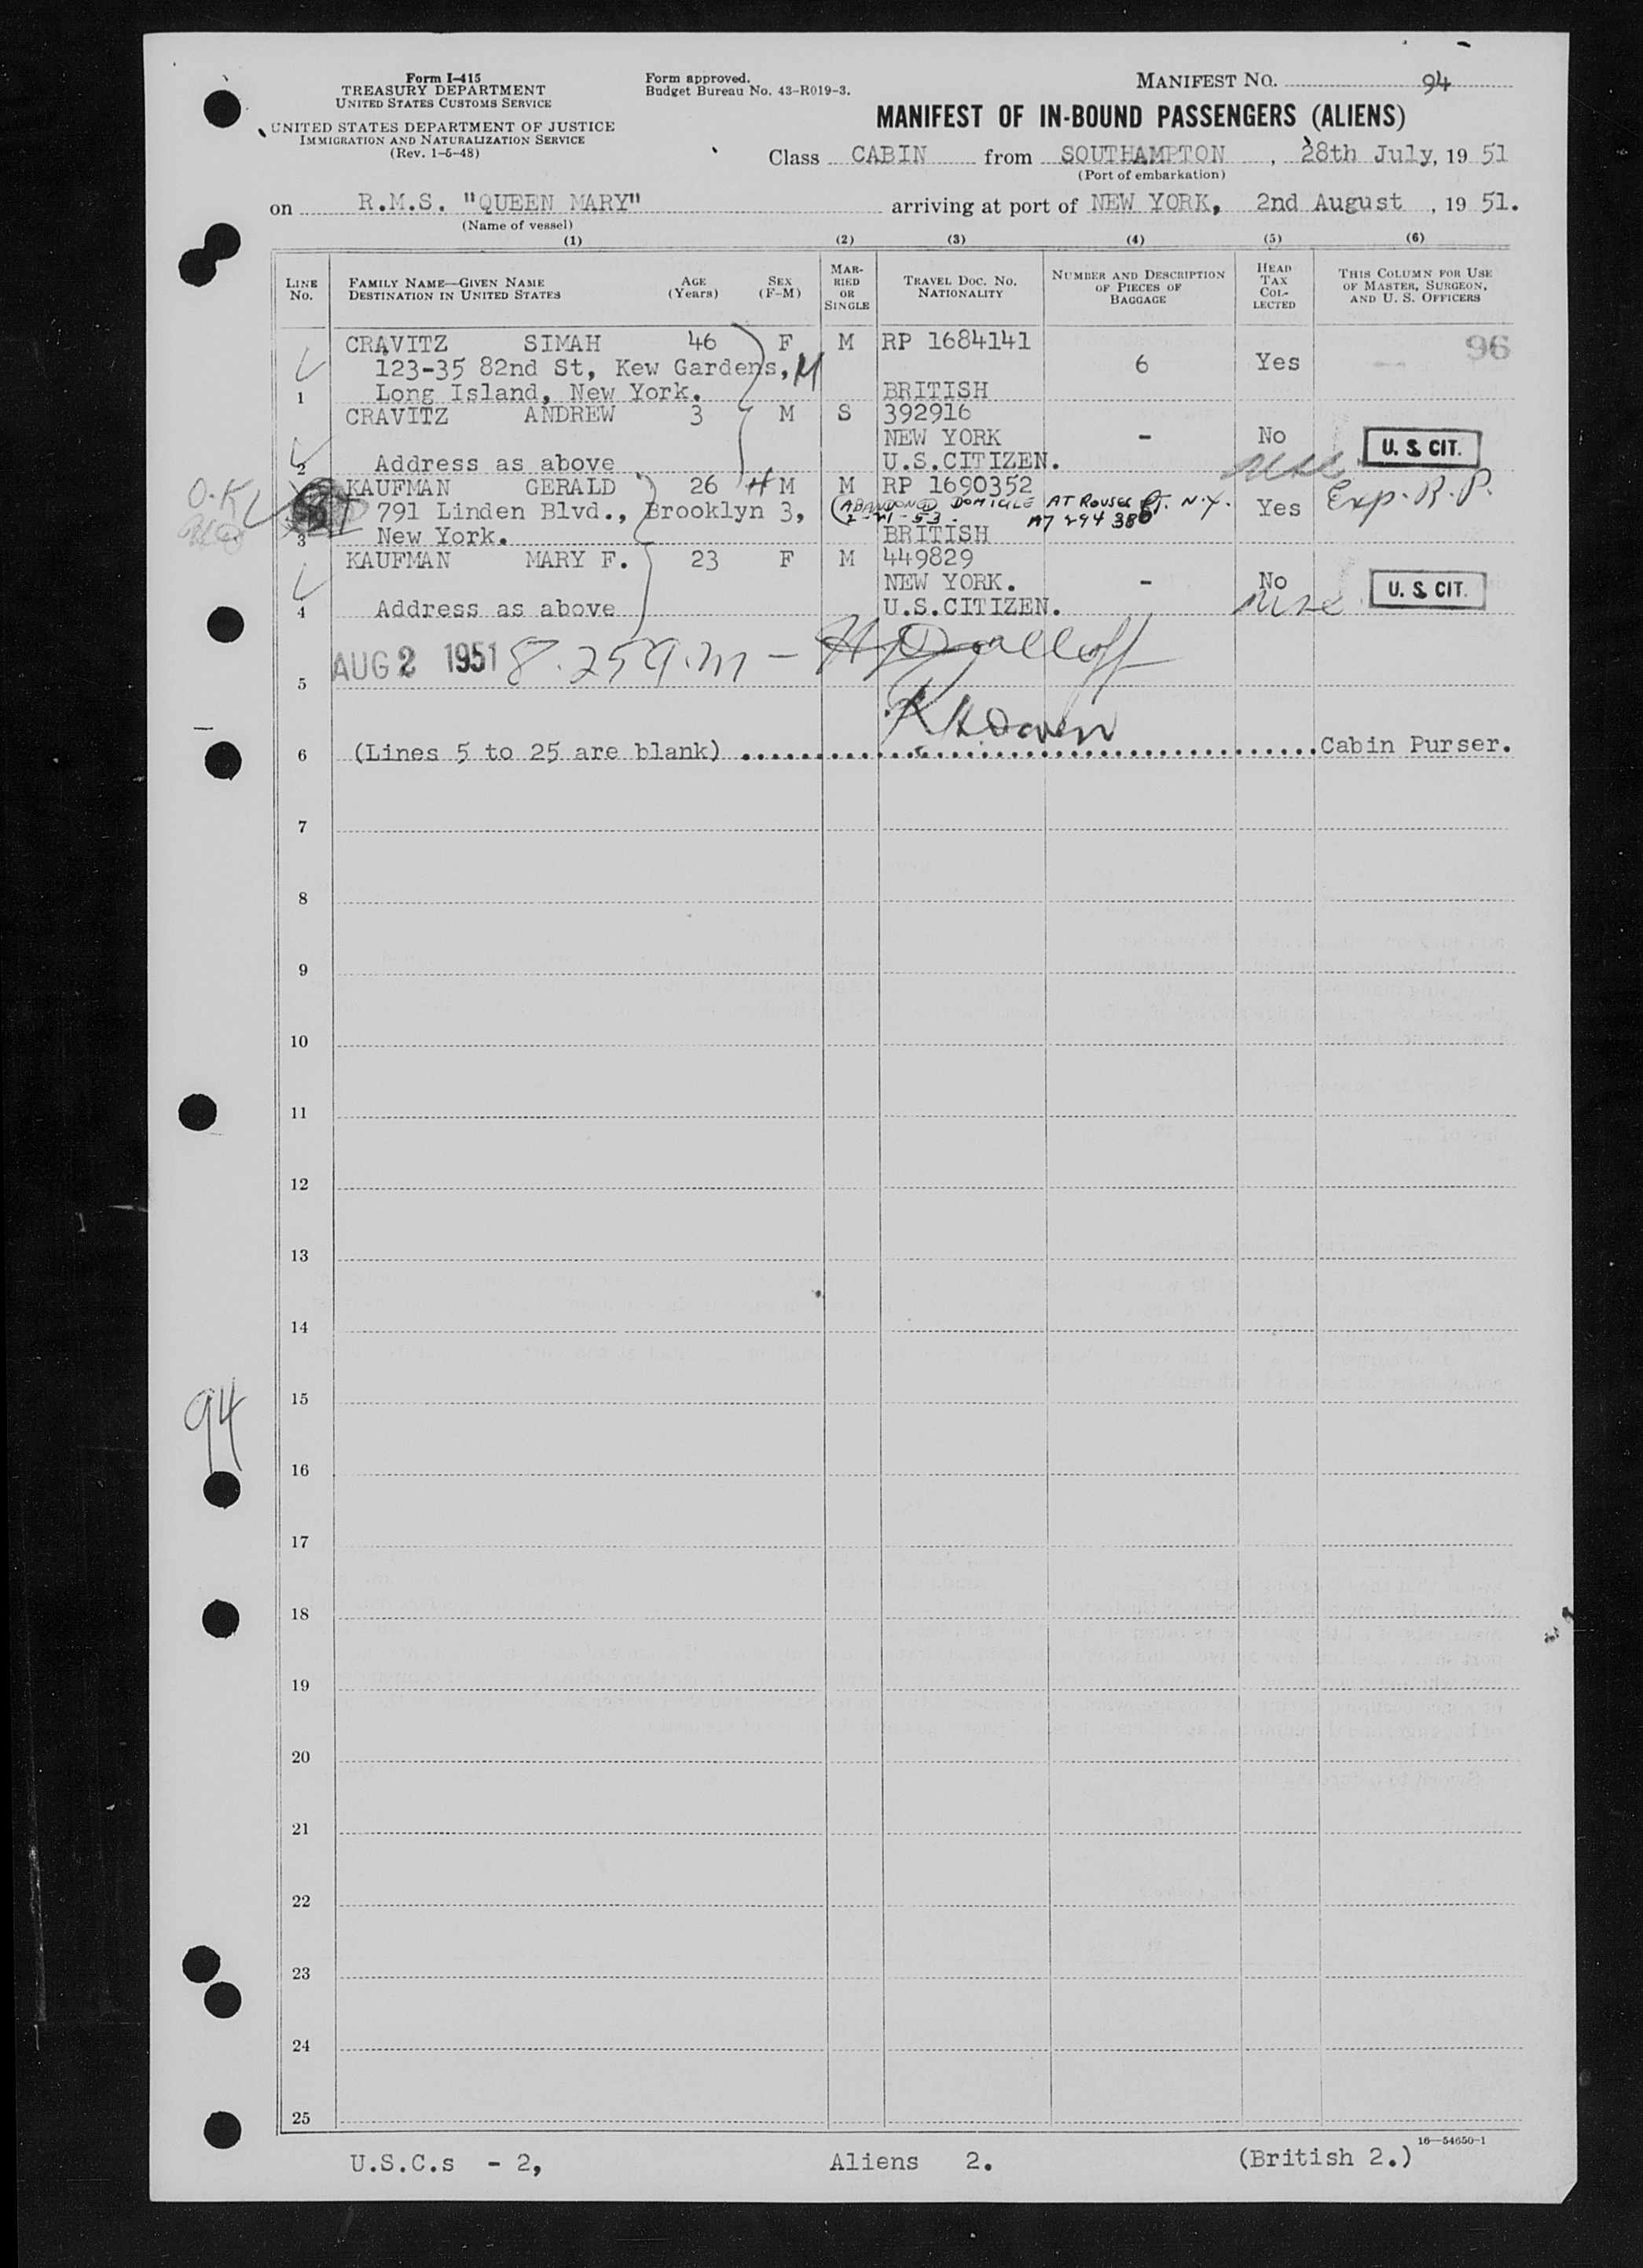 Form I-415
TREASURY DEPARTMENT
UNITED STATES CUSTOMS SERVICE
UNITED STATES DEPARTMENT OF JUSTICE
IMMIGRATION AND NATURALIZATION SERVICE
(Rev. 1-5-48)
Form approved.
Budget Bureau No. 43-R019-3.
MANIFEST NO. 94
MANIFEST OF IN-BOUND PASSENGERS (ALIENS)
Class CABIN from SOUTHAMPTON, 28th July, 19 51
(Port of embarkation)
on R.M.S. "QUEEN MARY" arriving at port of NEW YORK, 2nd August, 19 51.
(Name of vessel)
(1) (2) (3) (4) (5) (6)
LINE NO. FAMILY NAME—GIVEN NAME DESTINATION IN UNITED STATES AGE (Years) SEX (F-M) MARRIED OR SINGLE TRAVEL DOC. NO. NATIONALITY NUMBER AND DESCRIPTION OF PIECES OF BAGGAGE HEAD TAX COLLECTED THIS COLUMN FOR USE OF MASTER, SURGEON, AND U. S. OFFICERS
CRAVITZ SIMAH 46 F M RP 1684141 96
123-35 82nd St, Kew Gardens, M 6 Yes
1 Long Island, New York. BRITISH
CRAVITZ ANDREW 3 M S 392916
NEW YORK - No U. S. CIT.
2 Address as above U.S.CITIZEN.
O.K. KAUFMAN GERALD 26 H M M RP 1690352 Exp. R.P.
791 Linden Blvd., Brooklyn 3, (ABANDONED DOMICILE AT ROUSES PT. N.Y. Yes
2-21-53. A7 294 380
3 New York. BRITISH
KAUFMAN MARY F. 23 F M 449829
NEW YORK. - No U. S. CIT.
4 Address as above U.S.CITIZEN.
AUG 2 1951 8.25 a.m -
5
6 (Lines 5 to 25 are blank) Cabin Purser.
7
8
9
10
11
12
13
14
15
94
16
17
18
19
20
21
22
23
24
25
16—54650-1
U.S.C.s - 2, Aliens 2. (British 2.)